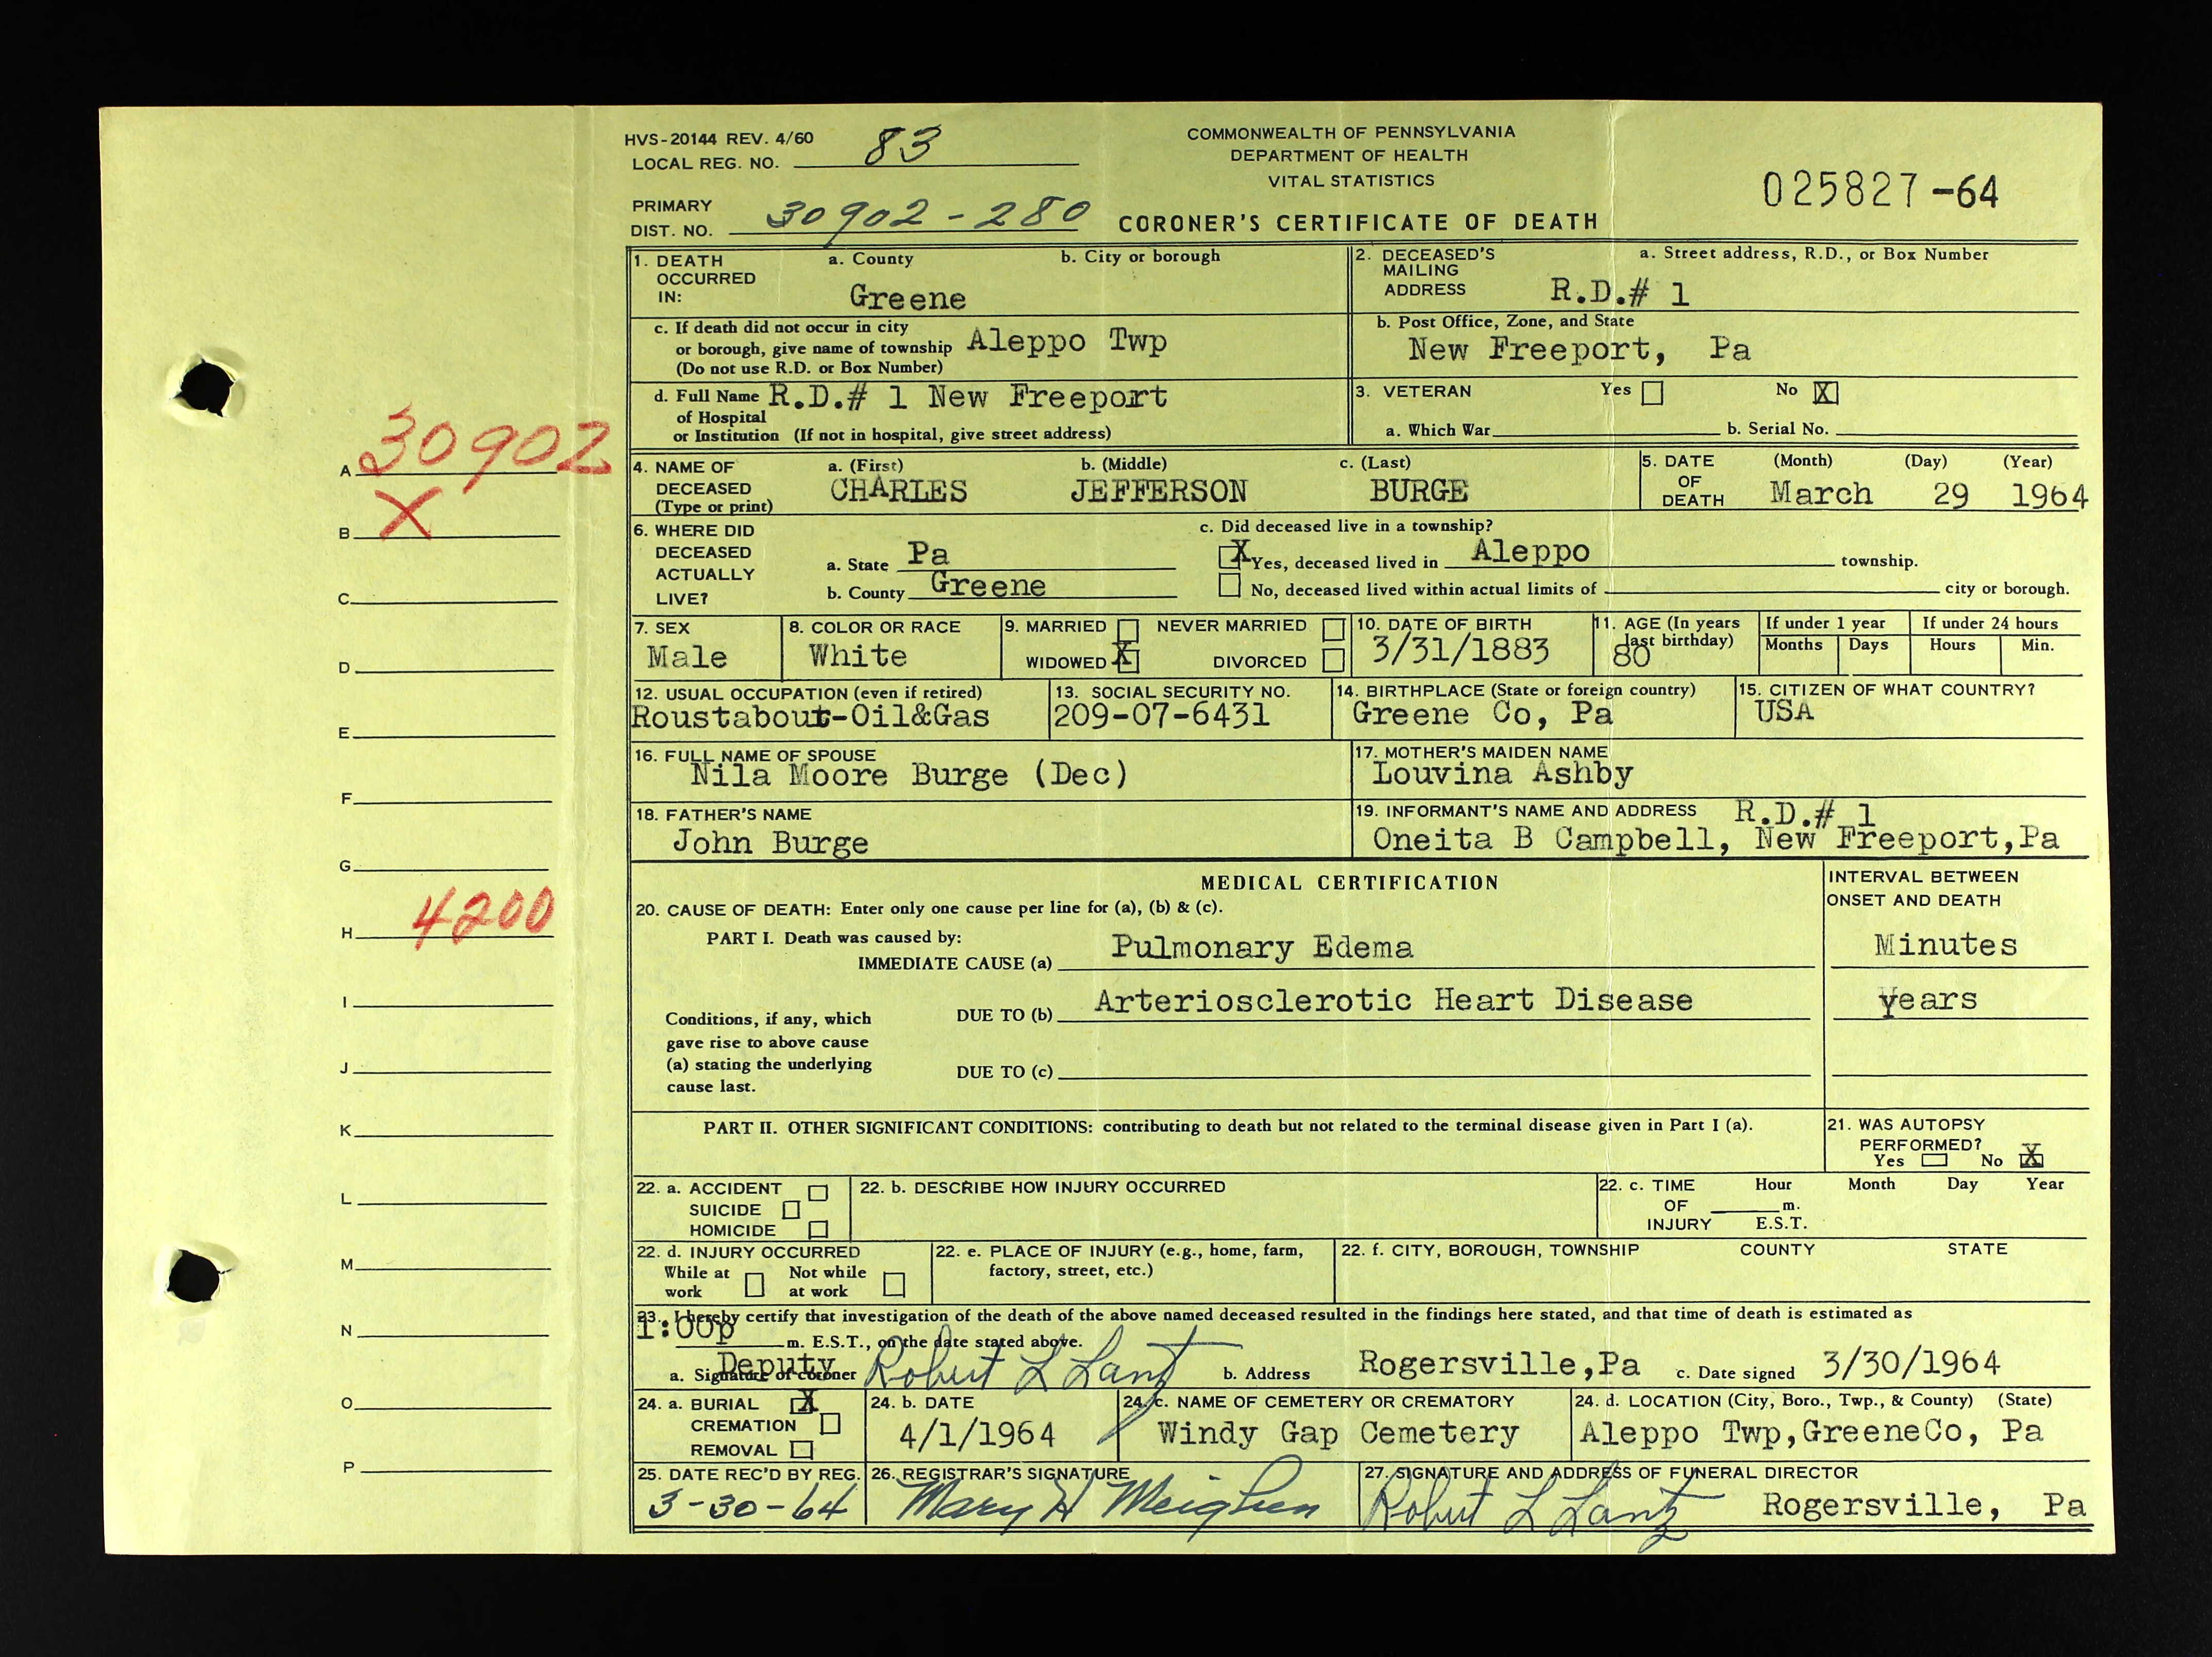 HVS-20144 REV. 4/60
LOCAL REG. NO. 83
COMMONWEALTH OF PENNSYLVANIA
DEPARTMENT OF HEALTH
VITAL STATISTICS
025827-64
PRIMARY
DIST. NO. 30902-280
CORONER'S CERTIFICATE OF DEATH
1. DEATH OCCURRED IN: a. County b. City or borough
Greene
2. DECEASED'S MAILING ADDRESS a. Street address, R.D., or Box Number
R.D.# 1
c. If death did not occur in city
or borough, give name of township Aleppo Twp
(Do not use R.D. or Box Number)
b. Post Office, Zone, and State
New Freeport, Pa
d. Full Name R.D.# 1 New Freeport
of Hospital
or Institution (If not in hospital, give street address)
3. VETERAN Yes No X
a. Which War b. Serial No.
A 30902
4. NAME OF DECEASED (Type or print) a. (First) b. (Middle) c. (Last)
CHARLES JEFFERSON BURGE
5. DATE OF DEATH (Month) (Day) (Year)
March 29 1964
B X
6. WHERE DID DECEASED ACTUALLY LIVE?
a. State Pa
b. County Greene
c. Did deceased live in a township?
X Yes, deceased lived in Aleppo township.
No, deceased lived within actual limits of city or borough.
C
7. SEX
Male
8. COLOR OR RACE
White
9. MARRIED NEVER MARRIED
WIDOWED X DIVORCED
10. DATE OF BIRTH
3/31/1883
11. AGE (In years last birthday)
80
If under 1 year
Months Days
If under 24 hours
Hours Min.
D
12. USUAL OCCUPATION (even if retired)
Roustabout-Oil&Gas
13. SOCIAL SECURITY NO.
209-07-6431
14. BIRTHPLACE (State or foreign country)
Greene Co, Pa
15. CITIZEN OF WHAT COUNTRY?
USA
E
16. FULL NAME OF SPOUSE
Nila Moore Burge (Dec)
17. MOTHER'S MAIDEN NAME
Louvina Ashby
F
18. FATHER'S NAME
John Burge
19. INFORMANT'S NAME AND ADDRESS R.D.# 1
Oneita B Campbell, New Freeport,Pa
G
MEDICAL CERTIFICATION
INTERVAL BETWEEN
ONSET AND DEATH
20. CAUSE OF DEATH: Enter only one cause per line for (a), (b) & (c).
H 4200
PART I. Death was caused by:
IMMEDIATE CAUSE (a) Pulmonary Edema Minutes
I
DUE TO (b) Arteriosclerotic Heart Disease years
Conditions, if any, which
gave rise to above cause
(a) stating the underlying
cause last.
J
DUE TO (c)
K
PART II. OTHER SIGNIFICANT CONDITIONS: contributing to death but not related to the terminal disease given in Part I (a).
21. WAS AUTOPSY
PERFORMED?
Yes No X
L
22. a. ACCIDENT
SUICIDE
HOMICIDE
22. b. DESCRIBE HOW INJURY OCCURRED
22. c. TIME OF INJURY Hour Month Day Year
m.
E.S.T.
M
22. d. INJURY OCCURRED
While at work Not while at work
22. e. PLACE OF INJURY (e.g., home, farm,
factory, street, etc.)
22. f. CITY, BOROUGH, TOWNSHIP COUNTY STATE
N
23. I hereby certify that investigation of the death of the above named deceased resulted in the findings here stated, and that time of death is estimated as
1:00p m. E.S.T., on the date stated above.
Deputy
a. Signature of coroner Robert L Lantz b. Address Rogersville,Pa c. Date signed 3/30/1964
O
24. a. BURIAL X
CREMATION
REMOVAL
24. b. DATE
4/1/1964
24. c. NAME OF CEMETERY OR CREMATORY
Windy Gap Cemetery
24. d. LOCATION (City, Boro., Twp., & County) (State)
Aleppo Twp,GreeneCo, Pa
P
25. DATE REC'D BY REG.
3-30-64
26. REGISTRAR'S SIGNATURE
Mary H Meighen
27. SIGNATURE AND ADDRESS OF FUNERAL DIRECTOR
Robert L Lantz Rogersville, Pa